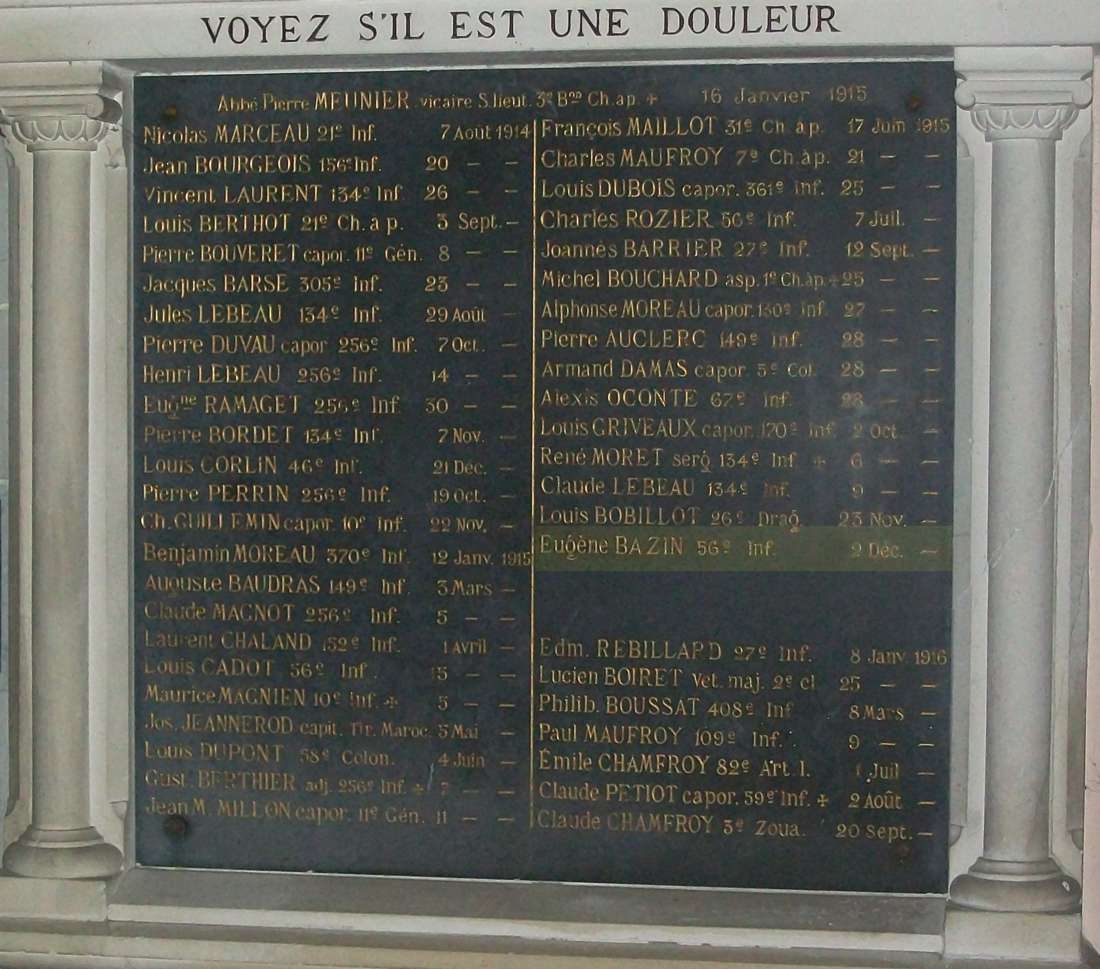 VOYEZ S'IL EST UNE DOULEUR
Abbé Pierre MEUNIER vicaire S.lieut. 3e Bon Ch.ap. + 16 Janvier 1915
Nicolas MARCEAU 21e Inf. 7 Août 1914
Jean BOURGEOIS 156e Inf. 20 — —
Vincent LAURENT 134e Inf 26 — —
Louis BERTHOT 21e Ch. à p. 3 Sept. —
Pierre BOUVERET capor. 11e Gén. 8 — —
Jacques BARSE 305e Inf. 23 — —
Jules LEBEAU 134e Inf. 29 Août —
Pierre DUVAU capor 256e Inf. 7 Oct. —
Henri LEBEAU 256e Inf. 14 — —
Eugne RAMAGET 256e Inf 30 — —
Pierre BORDET 134e Inf. 7 Nov. —
Louis CORLIN 46e Inf. 21 Déc. —
Pierre PERRIN 256e Inf. 19 Oct. —
Ch. GUILLEMIN capor. 10e Inf. 22 Nov. —
Benjamin MOREAU 370e Inf. 12 Janv. 1915
Auguste BAUDRAS 149e Inf. 3 Mars —
Claude MAGNOT 256e Inf. 5 — —
Laurent CHALAND 152e Inf. 1 Avril —
Louis CADOT 56e Inf. 15 — —
Maurice MAGNIEN 10e Inf. + 5 — —
Jos. JEANNEROD capit. Tir. Maroc. 5 Mai —
Louis DUPONT 58e Colon. 4 Juin —
Gust. BERTHIER adj. 256e Inf. + 7 — —
Jean M. MILLON capor. 11e Gén. 11 — —
François MAILLOT 31e Ch. à p. 17 Juin 1915
Charles MAUFROY 7e Ch. à p. 21 — —
Louis DUBOIS capor. 361e Inf. 25 — —
Charles ROZIER 56e Inf. 7 Juil. —
Joannès BARRIER 27e Inf. 12 Sept. —
Michel BOUCHARD asp. 1e Ch. àp. + 25 — —
Alphonse MOREAU capor. 130e Inf. 27 — —
Pierre AUCLERC 149e Inf. 28 — —
Armand DAMAS capor. 5e Col. 28 — —
Alexis OCONTE 67e Inf. 28 — —
Louis GRIVEAUX capor. 170e Inf 2 Oct. —
René MORET serg 134e Inf + 6 — —
Claude LEBEAU 134e Inf. 9 — —
Louis BOBILLOT 26e Drag. 23 Nov. —
Eugène BAZIN 56e Inf. 2 Déc. —
Edm. REBILLARD 27e Inf. 8 Janv. 1916
Lucien BOIRET Vet. maj. 2e cl 25 — —
Philib. BOUSSAT 408e Inf 8 Mars —
Paul MAUFROY 109e Inf. 9 — —
Émile CHAMFROY 82e Art. l. 1 Juil —
Claude PETIOT capor. 59e Inf. + 2 Août —
Claude CHAMFROY 3e Zoua. 20 Sept. —